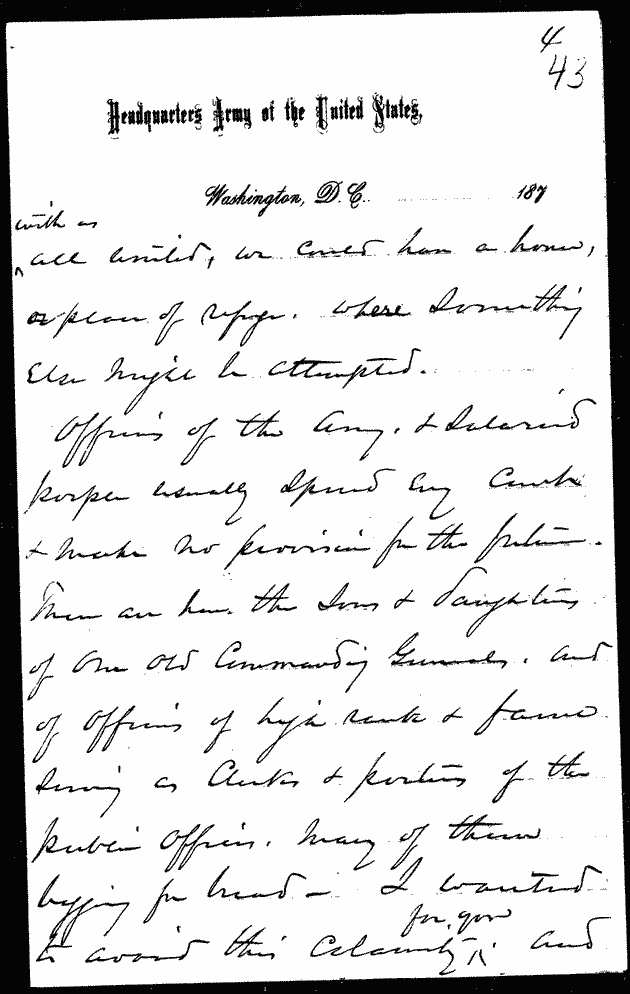 4
43
Headquarters Army of the United States,
Washington, D.C. 187
with us
all united, we could have a home,
or place of refuge. where Something
Else Might be attempted.
Officers of the Army, & Salaried
people usually Spend Every Cent
& make no provision for the future.
There are here the Sons & daughters
of our old Commanding Generals. and
of officers of high rank & fame
Serving as Clerks & porters of the
public offices. Many of them
begging for bread – I wanted
for you
to avoid this Calamity. and